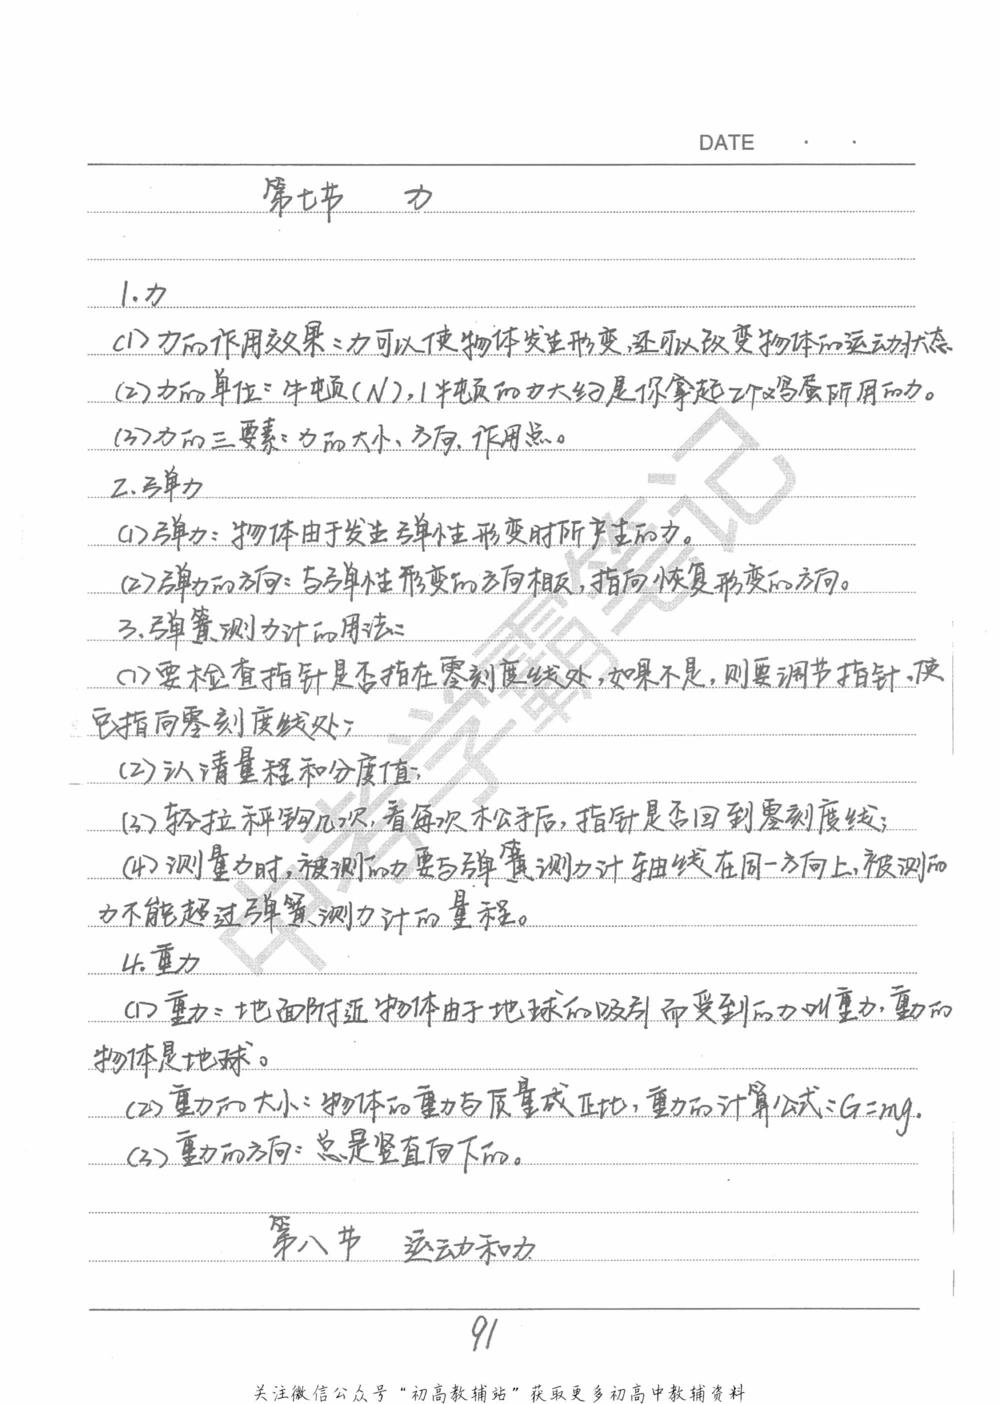 DATE · ·
第七节 力
1.力
(1)力的作用效果:力可以使物体发生形变,还可以改变物体的运动状态
(2)力的单位:牛顿(N),1牛顿的力大约是你拿起2个鸡蛋所用的力。
(3)力的三要素:力的大小、方向、作用点。
2.弹力
(1)弹力:物体由于发生弹性形变时所产生的力。
(2)弹力的方向:与弹性形变的方向相反,指向恢复形变的方向。
3.弹簧测力计的用法:
(1)要检查指针是否指在零刻度线处,如果不是,则要调节指针,使
它指向零刻度线处;
(2)认清量程和分度值;
(3)轻拉秤钩几次,看每次松手后,指针是否回到零刻度线;
(4)测量力时,被测的力要与弹簧测力计轴线在同一方向上,被测的
力不能超过弹簧测力计的量程。
4.重力
(1)重力:地面附近物体由于地球的吸引而受到的力叫重力,重力的
物体是地球。
(2)重力的大小:物体的重力与质量成正比,重力的计算公式:G=mg.
(3)重力的方向:总是竖直向下的。
第八节 运动和力
91
关注微信公众号“初高教辅站”获取更多初高中教辅资料
中考学霸笔记